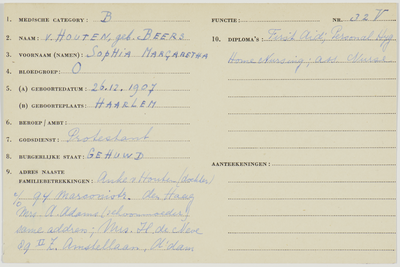 1. MEDISCHE CATEGORY : B
2. NAAM : v. HOUTEN, geb. BEERS
3. VOORNAAM (NAMEN) : SOPHIA MARGARETHA
4. BLOEDGROEP : O
5. (A) GEBOORTEDATUM : 26.12.1907
(B) GEBOORTEPLAATS : HAARLEM
6. BEROEP / AMBT :
7. GODSDIENST : Protestant
8. BURGERLIJKE STAAT : GEHUWD
9. ADRES NAASTE
FAMILIEBETREKKINGEN : v Houten (dochter)
94 Marconistr. den Haag
Mrs. A. Adams (schoonmoeder)
same address; Mrs. H. de
Amstellaan, A'dam
FUNCTIE : NR. 32 V
10. DIPLOMA's : First Aid; Personal Hyg.
Home Nursing; Ass. Nurse
AANTEEKENINGEN :